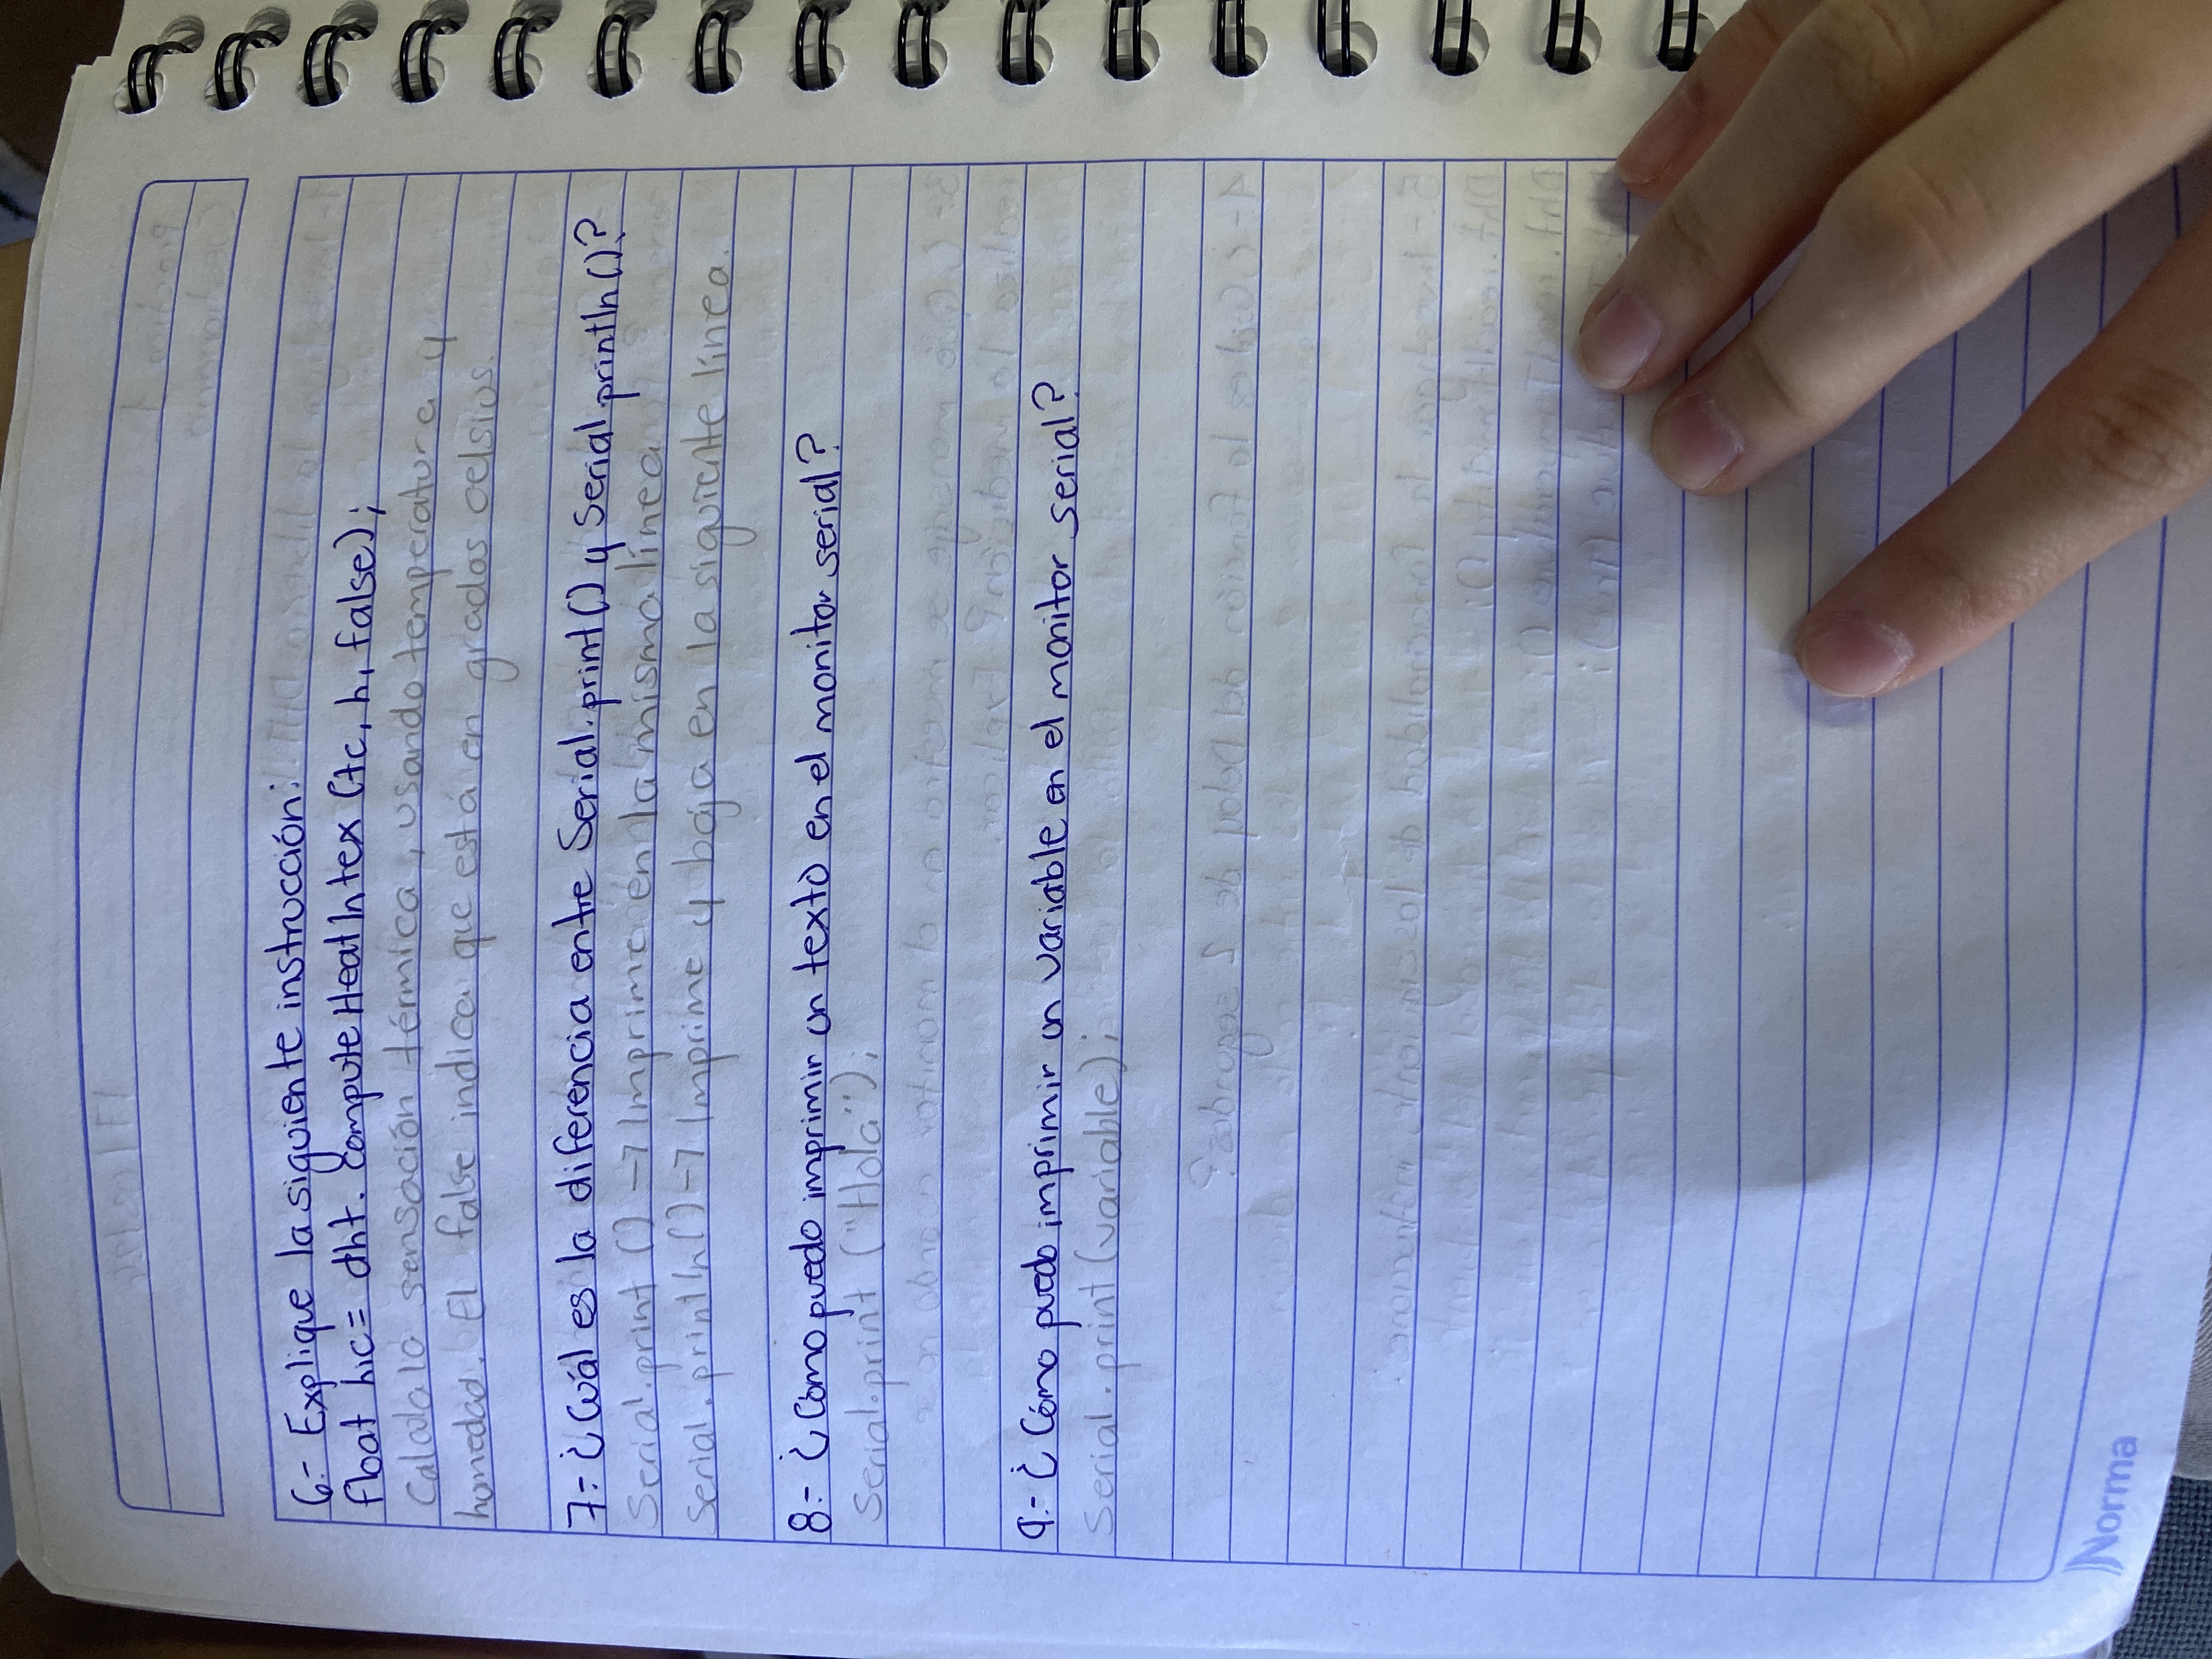 6.- Explique la siguiente instrucción:
float hic= dht. computeHeatIntex (tc, h, false);
Calcula la sensación térmica, usando temperatura y
humedad. El false indica que está en grados celsius.
7.- ¿Cuál es la diferencia entre Serial.print() y Serial.println()?
Serial.print () -> Imprime en la misma línea
Serial.println() -> Imprime y baja en la siguiente línea.
8.- ¿Como puedo imprimir un texto en el monitor serial?
Serial.print ("Hola");
9.- ¿Cómo puedo imprimir un variable en el monitor serial?
Serial.print(variable);
Norma